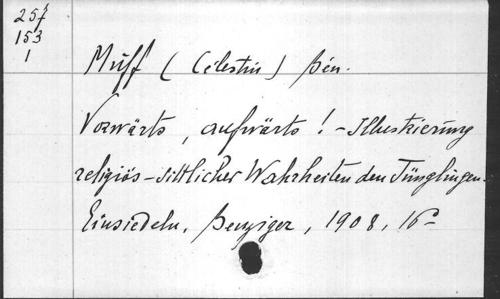 257
153
1
Muff (Célestin) bén.
Vorwärts, aufwärts! - Illustrierung
religiös - sittlicher Wahrheiten den Jünglingen.
Einsiedeln, Benziger, 1908, 16°